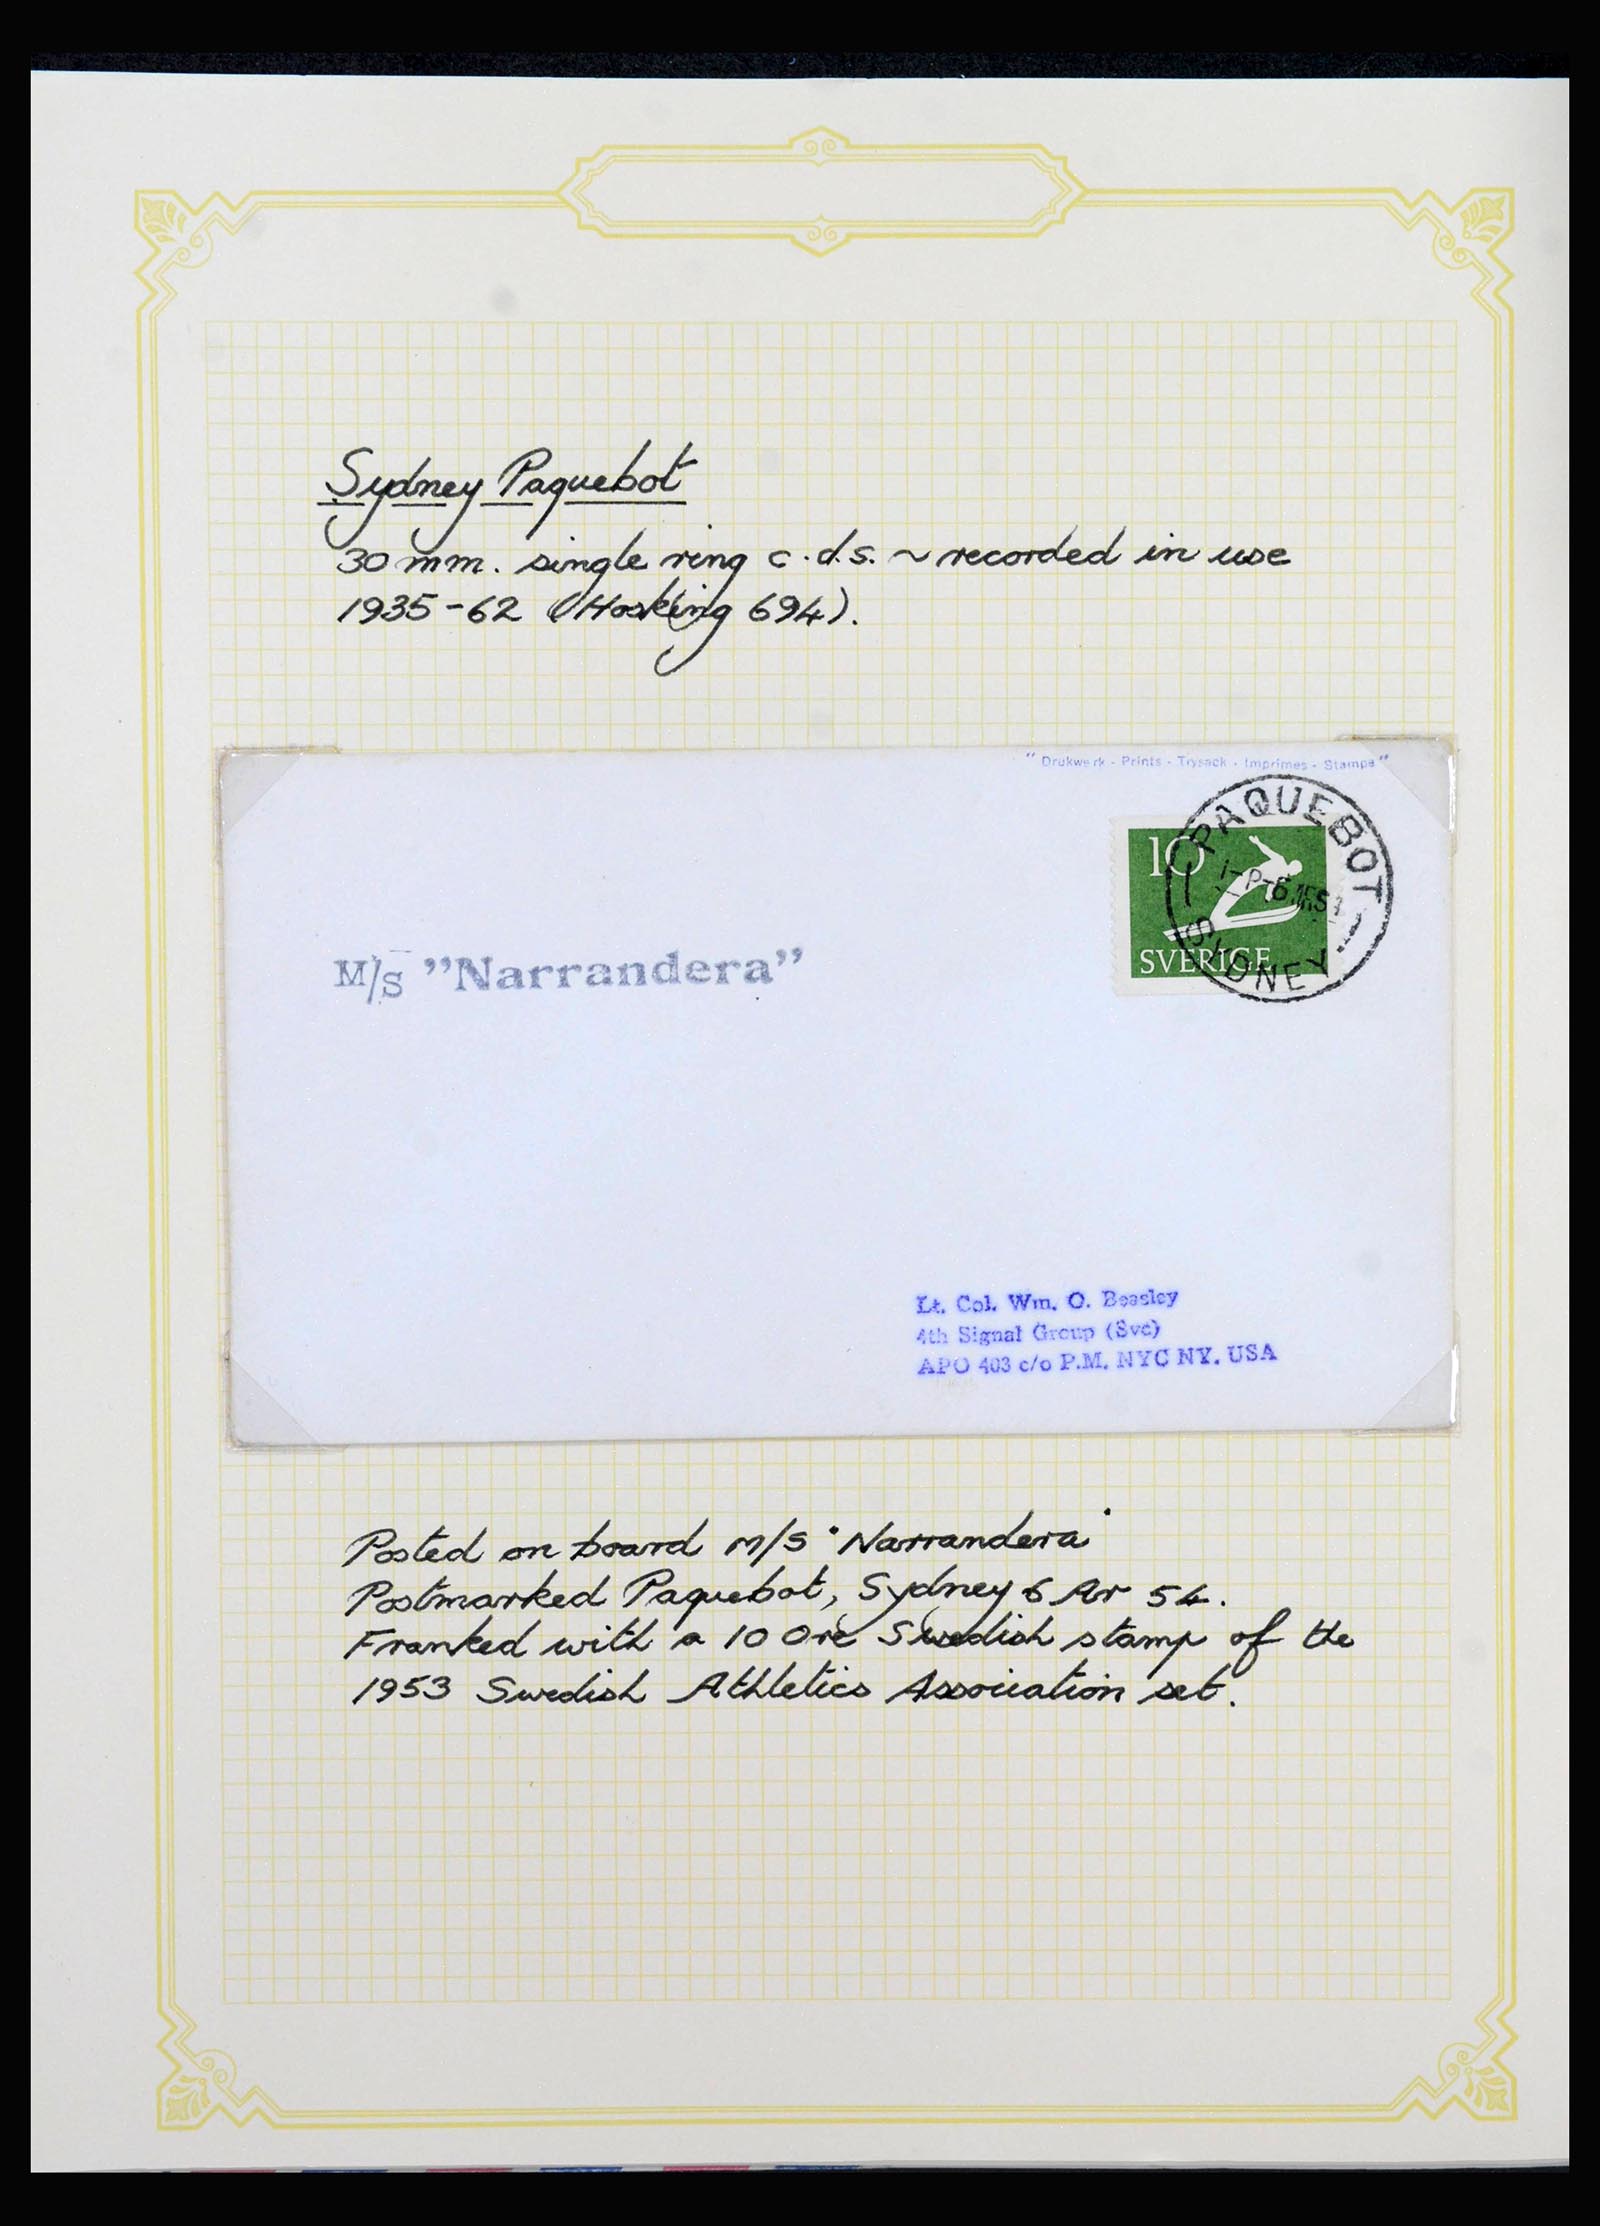 Sydney Paquebot
30 mm. single ring c.d.s. ~ recorded in use
1935-62 (Hosking 694).
"Drukwerk - Prints - Trysack - Imprimes - Stampe"
PAQUEBOT
SYDNEY
10
SVERIGE
M/S "Narrandera"
Lt. Col. Wm. O. Beasley
4th Signal Group (Svc)
APO 403 c/o P.M. NYC NY. USA
Posted on board M/S "Narrandera"
Postmarked Paquebot, Sydney 6 Ar 54.
Franked with a 10 Ore Swedish stamp of the
1953 Swedish Athletics Association set.